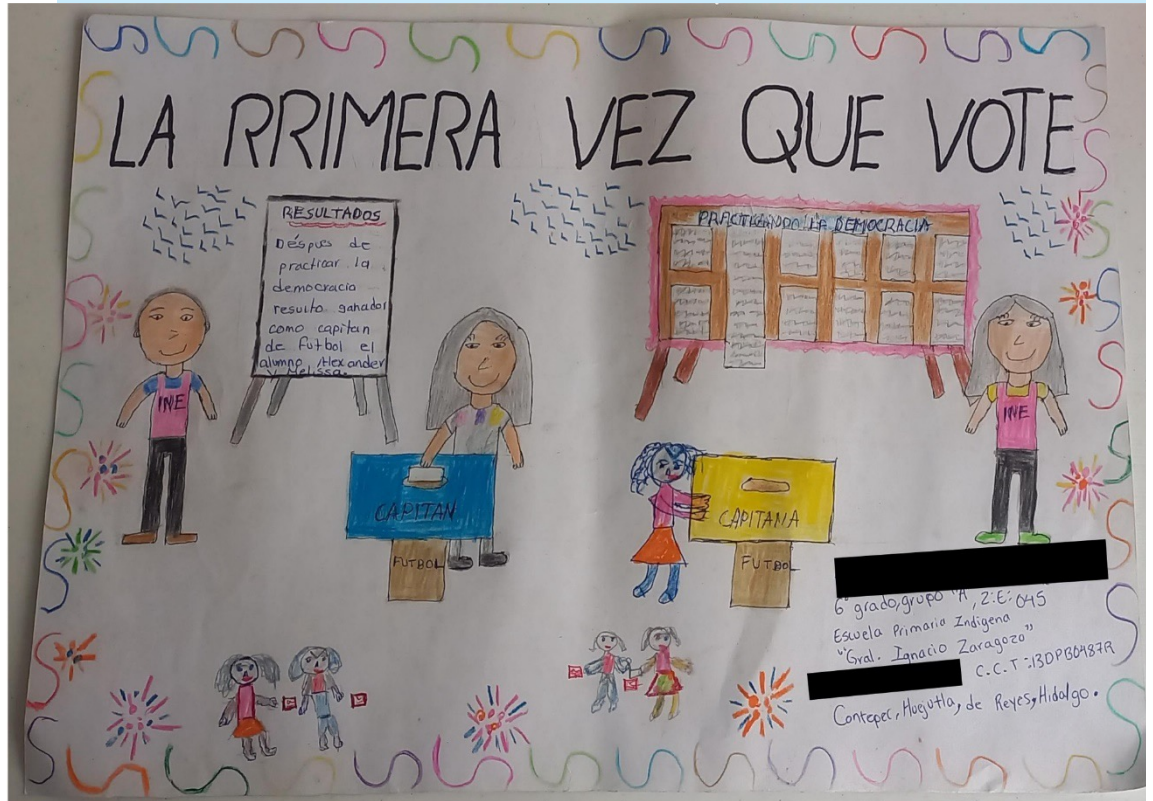 LA RRIMERA VEZ QUE VOTE
RESULTADOS
Déspues de
practicar la
democracia
resulto ganador
como capitan
de futbol el
alumno Alexander
y Melissa.
PRACTICANDO LA DEMOCRACIA
INE
INE
CAPITAN
FUTBOL
CAPITANA
FUTBOL
6° grado, grupo "A", Z:E: 045
Escuela Primaria Indigena
"Gral. Ignacio Zaragoza"
C.C.T:13DPB0487R
Contepec, Huejutla, de Reyes, Hidalgo.